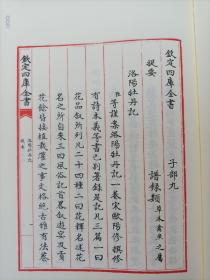 欽定四庫全書　子部九
提要　譜錄類草木禽魚之屬
洛陽牡丹記
臣等謹案洛陽牡丹記一卷宋歐陽修撰修
有詩本義等書已別著錄是記凡三篇一曰
花品敘所列凡二十四種二曰花釋名述花
名之所自來三曰風俗記首敘遊宴及貢
花餘皆接植栽灌之事文格絶古雅有法蔡
欽定四庫全書
洛陽牡丹記
提要